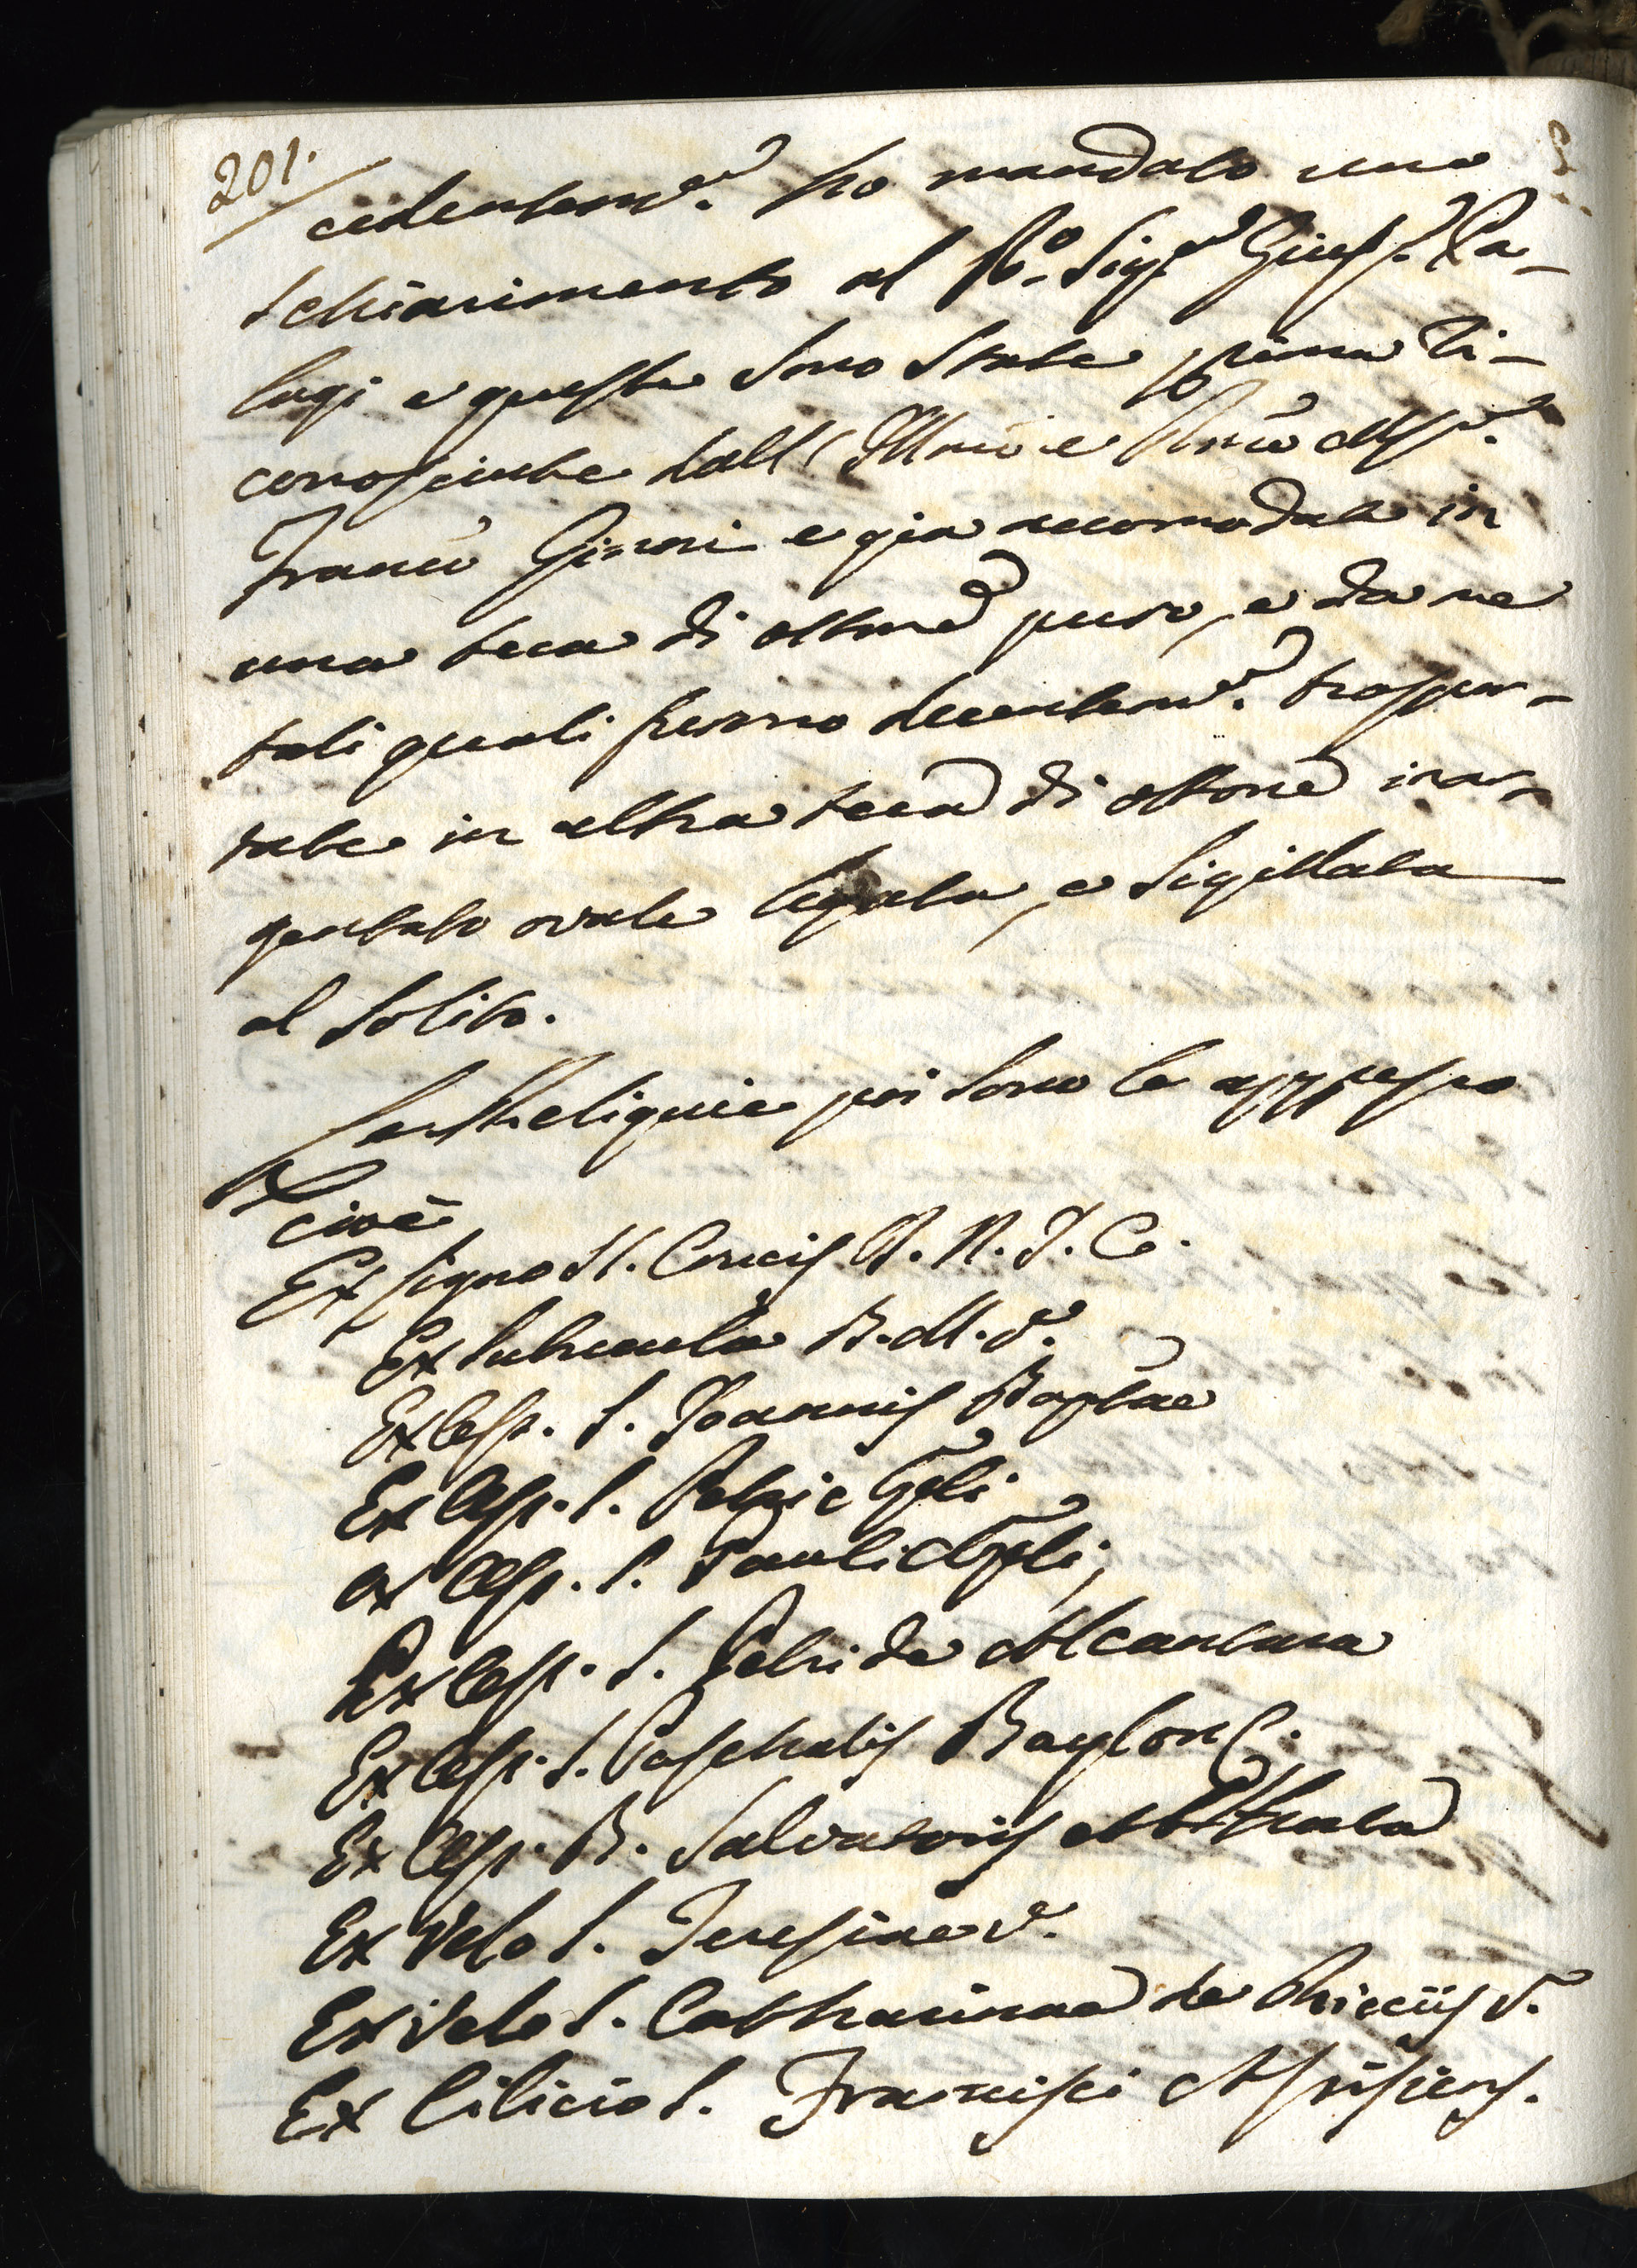 201.
cedentem.e ho mandato uno
schiarimento al R.o Sig.r Gius.e Ca-
lugi e queste sono state prima ri-
conosciute dall' Illmo e Rmo Msr.
Franco Ginori e già accomodate in
una teca di ottone puro, e da me
tali quali furono decentem.e traspor-
tate in altra teca di ottone inar-
gentato ovale legata, e sigillata
al solito.
Le Reliquie poi sono le appresso
cioè
Ex ligno SS. Crucis D. N. J. C.
Ex subucula B. M. V.
Ex Ossib. S. Joannis Baptae
Ex Ossib. S. Petri Apli
ex Ossib. S. Pauli Apli;
Ex Ossib. S. Petri de Alcantara
Ex Ossib. S. Paschalis Baylon C.
Ex Ossib. B. Salvatoris ab Horta
Ex Velo S. Teresiae V.
Ex Velo S. Catharinae de Ricciis V.
Ex Cilicio S. Francisci Assisiens.